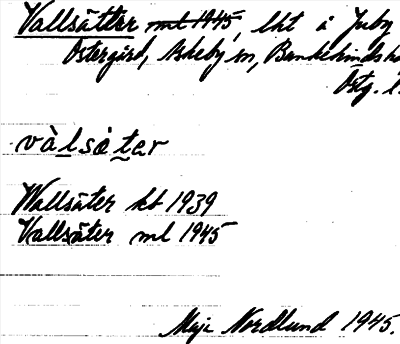 Vallsätter ml 1945, lht i Juby
Östergård, Askeby sn, Bankekinds hd
Östg. l.
vàlsàtar
Wallsäter kt 1939
Vallsäter ml 1945
Maja Nordlund 1945.